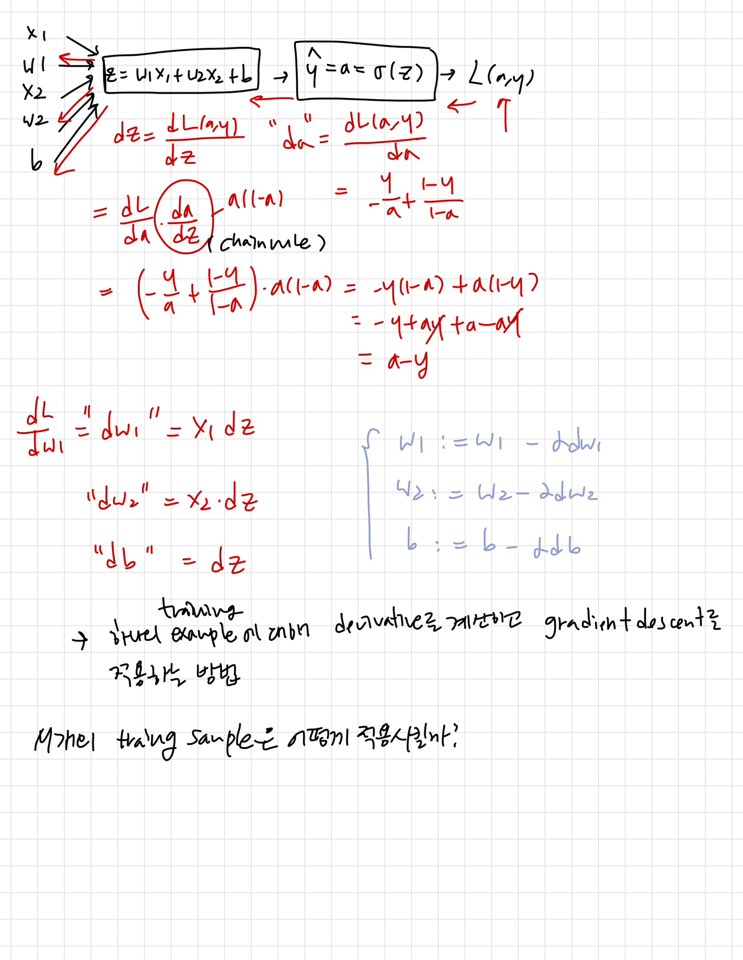 x1
w1
x2
w2
b
z = w1x1 + w2x2 + b → ŷ = a = σ(z) → L(a,y)
dz = dL(a,y)/dz "da" = dL(a,y)/da
= dL/da · da/dz a(1-a) = -y/a + 1-y/1-a
(chain rule)
= (-y/a + 1-y/1-a) · a(1-a) = -y(1-a) + a(1-y)
= -y + ay + a - ay
= a-y
dL/dw1 = "dw1" = x1 dz
"dw2" = x2 · dz
"db" = dz
w1 := w1 - αdw1
w2 := w2 - αdw2
b := b - αdb
training
→ 하나의 example에 대해 derivative를 계산하고 gradient descent를
적용하는 방법
M개의 traing sample은 어떻게 적용시킬까?